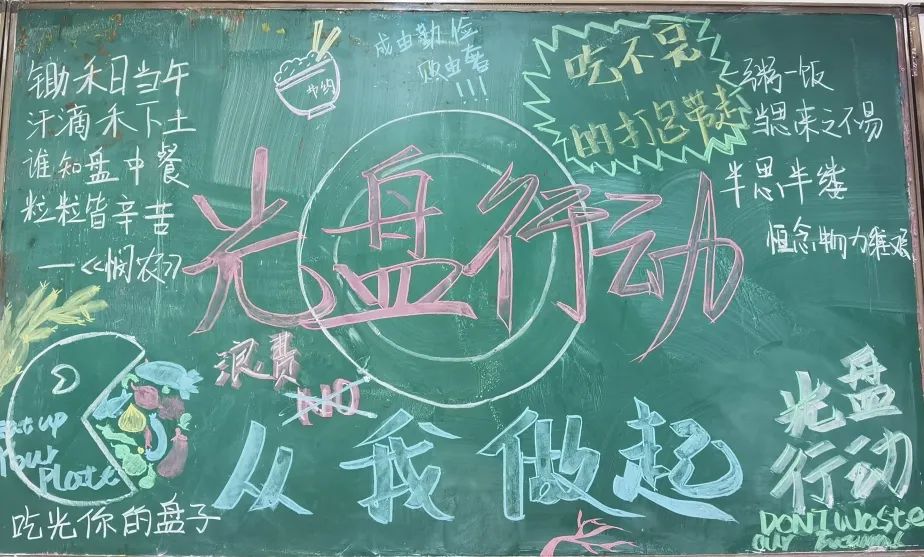 锄禾日当午
汗滴禾下土
谁知盘中餐
粒粒皆辛苦
—《悯农》
节约
成由勤俭
败由奢
!!!
吃不完
的打包带走
一粥一饭
当思来之不易
半思半缕
恒念物力维艰
光盘行动
浪费
NO
从我做起
Eat up
Your
Plate
吃光你的盘子
光盘
行动
DON'T Waste